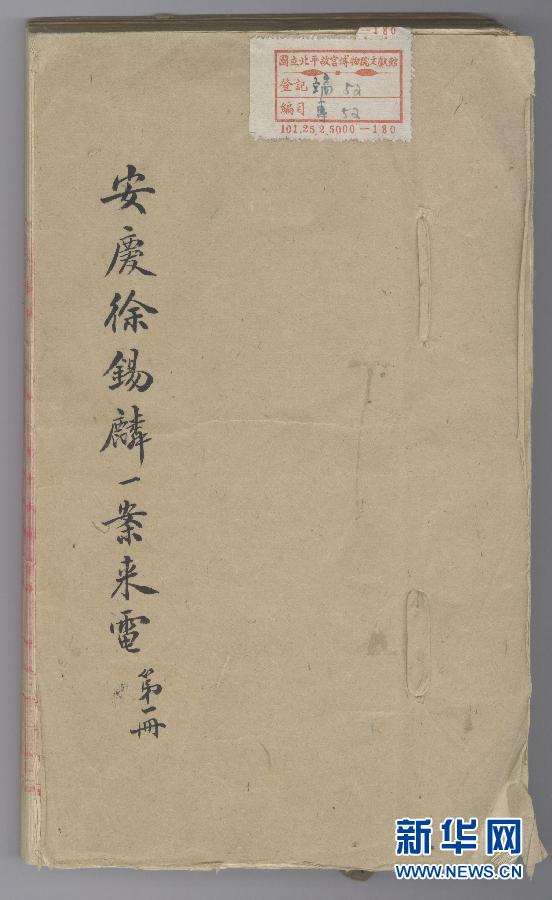 —180
國立北平故宮博物院文獻館
登記 端 52
編目 專 52
101.25.2.5000—180
安慶徐錫麟一案来電
第一冊
新华网
WWW.NEWS.CN